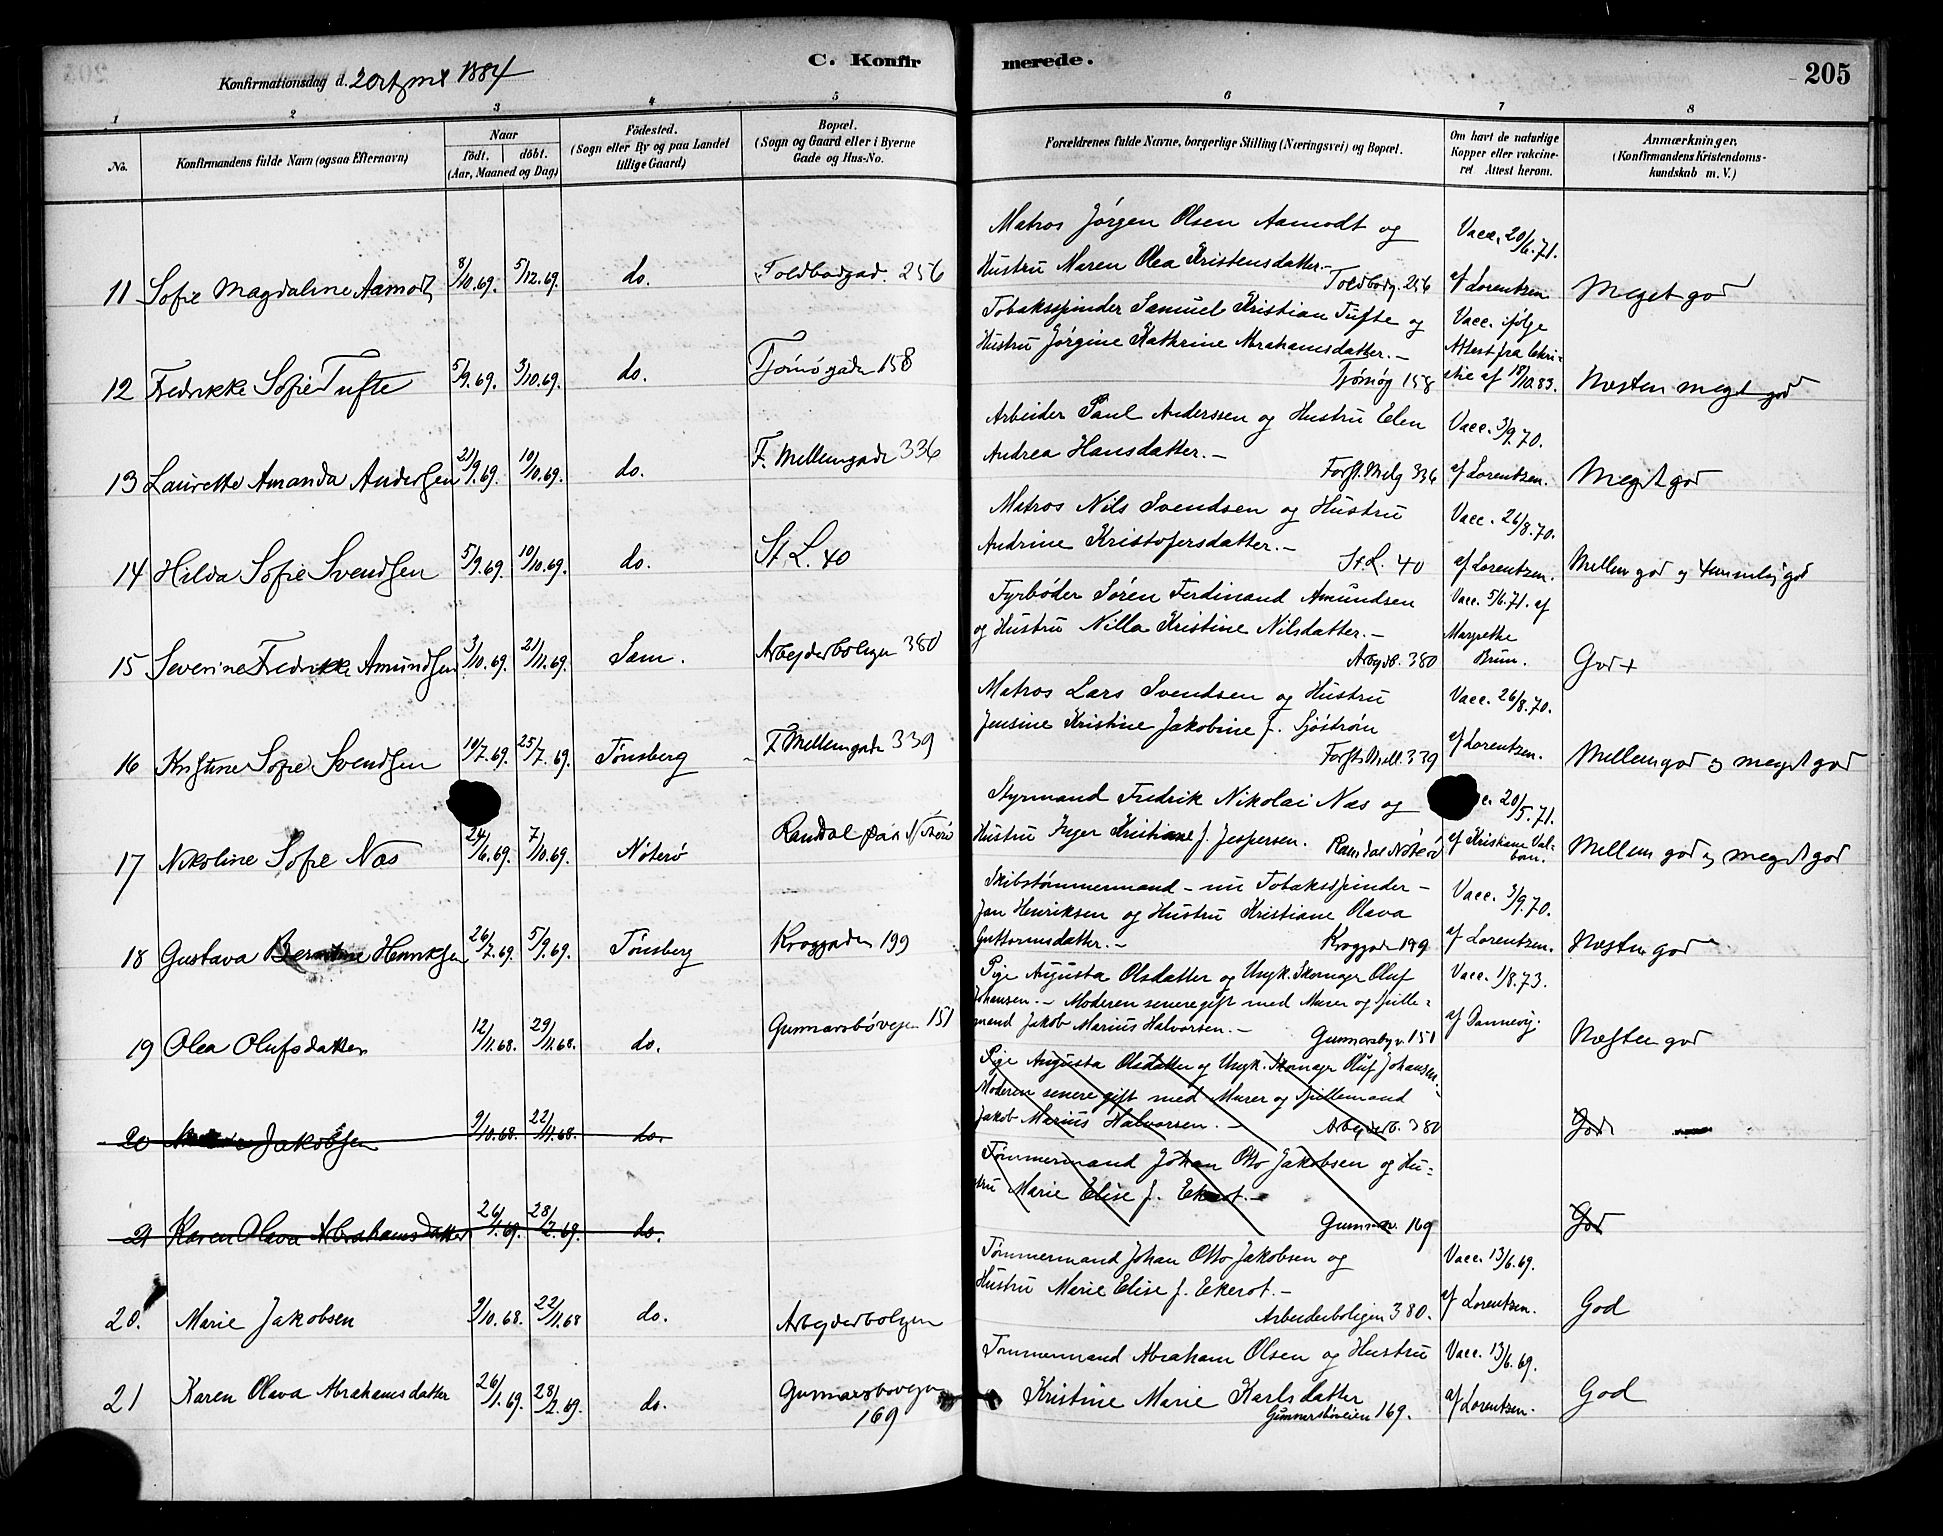 C. Konfirmerede.
205
Konfirmationsdag d. 1884
1 2 3 4 5 6 7 8
No.
Konfirmandens fulde Navn (ogsaa Efternavn)
Naar
født. døbt.
(Aar, Maaned og Dag)
Fødested.
(Sogn eller By og paa Landet
tillige Gaard)
Bopæl.
(Sogn og Gaard eller i Byerne
Gade og Hus-No.
Forældrenes fulde Navne, borgerlige Stilling (Næringsvei) og Bopæl.
Om havt de naturlige
Kopper eller vakcine-
ret Attest herom.
Anmærkninger.
(Konfirmandens Kristendoms-
kundskab m. V.)
Matros Jørgen Olsen Aamodt og Vacc. 20/6.71.
11 Sofie Magdaline Aamodt 8/10.69. 5/12.69. do. Toldbodgad. 256 Hustru Maren Olea Kristensdatter.- Toldbodg. 256 af Lorentzen Meget god
Tobaksspinder Samuel Kristian Tufte og Vacc. ifølge
Hustru Jørgine Kathrine Abrahamsdatter.- Attest fra
12 Fredrikke Sofie Tufte 5/9.69. 3/10.69. do. Tjømøgaden 158 Tjømøg 158 af 18/10.83. Næsten meget god
Arbeider Paul Anderssen og Hustru Elen Vacc. 3/9.70.
13 Laurette Amanda Andersen 21/9.69. 10/10.69. do. F. Mellemgade 336 Andrea Hansdatter.- Forst. Melg 336 af Lorentzen. Meget god
Matros Nils Svendsen og Hustru Vacc. 26/8.70.
14 Hilda Sofie Svendsen 5/9.69. 10/10.69. do. St. L. 40 Andrine Kristofersdatter.- St. L. 40 af Lorentzen. Mellem god og temmelig god
Fyrbøder Søren Ferdinand Amundsen Vacc. 5/6.71. af
og Hustru Nilla Kristine Nilsdatter.- Margrethe
15 Severine Fredrikke Amundsen 3/10.69. 21/11.69. Sem. Arbejderboligen 380 Arbejdb. 380 Brun. God +
Matros Lars Svendsen og Hustru Vacc. 26/8.70.
Jensine Kristine Jakobine f. Sjöström
16 Kristine Sofie Svendsen 10/7.69. 25/7.69. Tønsberg F. Mellemgade 339 Forsts Mell. 339 af Lorentzen. Mellem god og meget god
Styrmand Fredrik Nikolai Næs og 20/5.71.
17 Nikoline Sofie Næs 24/6.69. 7/10.69. Nøterø Ramdal paa Nøterø Hustru Inger Kristiane f. Jespersen. Ramdal Nøterø af Kristiane Mellem god og meget god
Skibstømmermand - nu Tobaksspinder - Vacc. 3/9.70.
Jan Henriksen og Hustru Kristiane Olava
18 Gustava Berntine Henriksen 26/7.69. 5/9.69. Tønsberg Kroggaden 199 Guttormsdatter.- Kroggaden 199 af Lorentzen. Næsten god
Pige Augusta Olsdatter og Ungk. Skomager Oluf Vacc. 1/8.73.
Johansen.- Moderen senere gift med Murer og Spille-
19 Olea Olufsdatter 12/11.68. 29/11.68. do. Gunnarsbøvejen 151 mand Jakob Marius Halvorsen.- Gunnarsbv. 151 af Dannevig. Næsten god
Pige Augusta Olsdatter og Ungk. Skomager Oluf Johansen.
Moderen senere gift med Murer og Spillemand
20 Jakobsen 9/10.68. 22/11.68. do. Jakob Marius Halvorsen.- Arbejderb. 380 God
Tømmermand Johan Otto Jakobsen og Hu-
stru Marie Elise f. Ekerot.-
21 Karen Olava Abrahamsdatter 26/1.69. 28/2.69. do. Gunnarsv. 169 God
Tømmermand Johan Otto Jakobsen og Vacc. 13/6.69.
Hustru Marie Elise f. Ekerot.-
20. Marie Jakobsen 9/10.68. 22/11.68 do. Arbejderboligen Arbeiderboligen 380. af Lorentzen. God
Tømmermand Abraham Olsen og Hustru Vacc. 13/6.69.
21 Karen Olava Abrahamsdatter 26/1.69. 28/2.69. do. Gunnarsbøvejen Kristine Marie Karlsdatter af Lorentzen. God
169 Gunnarsbøveien 169.